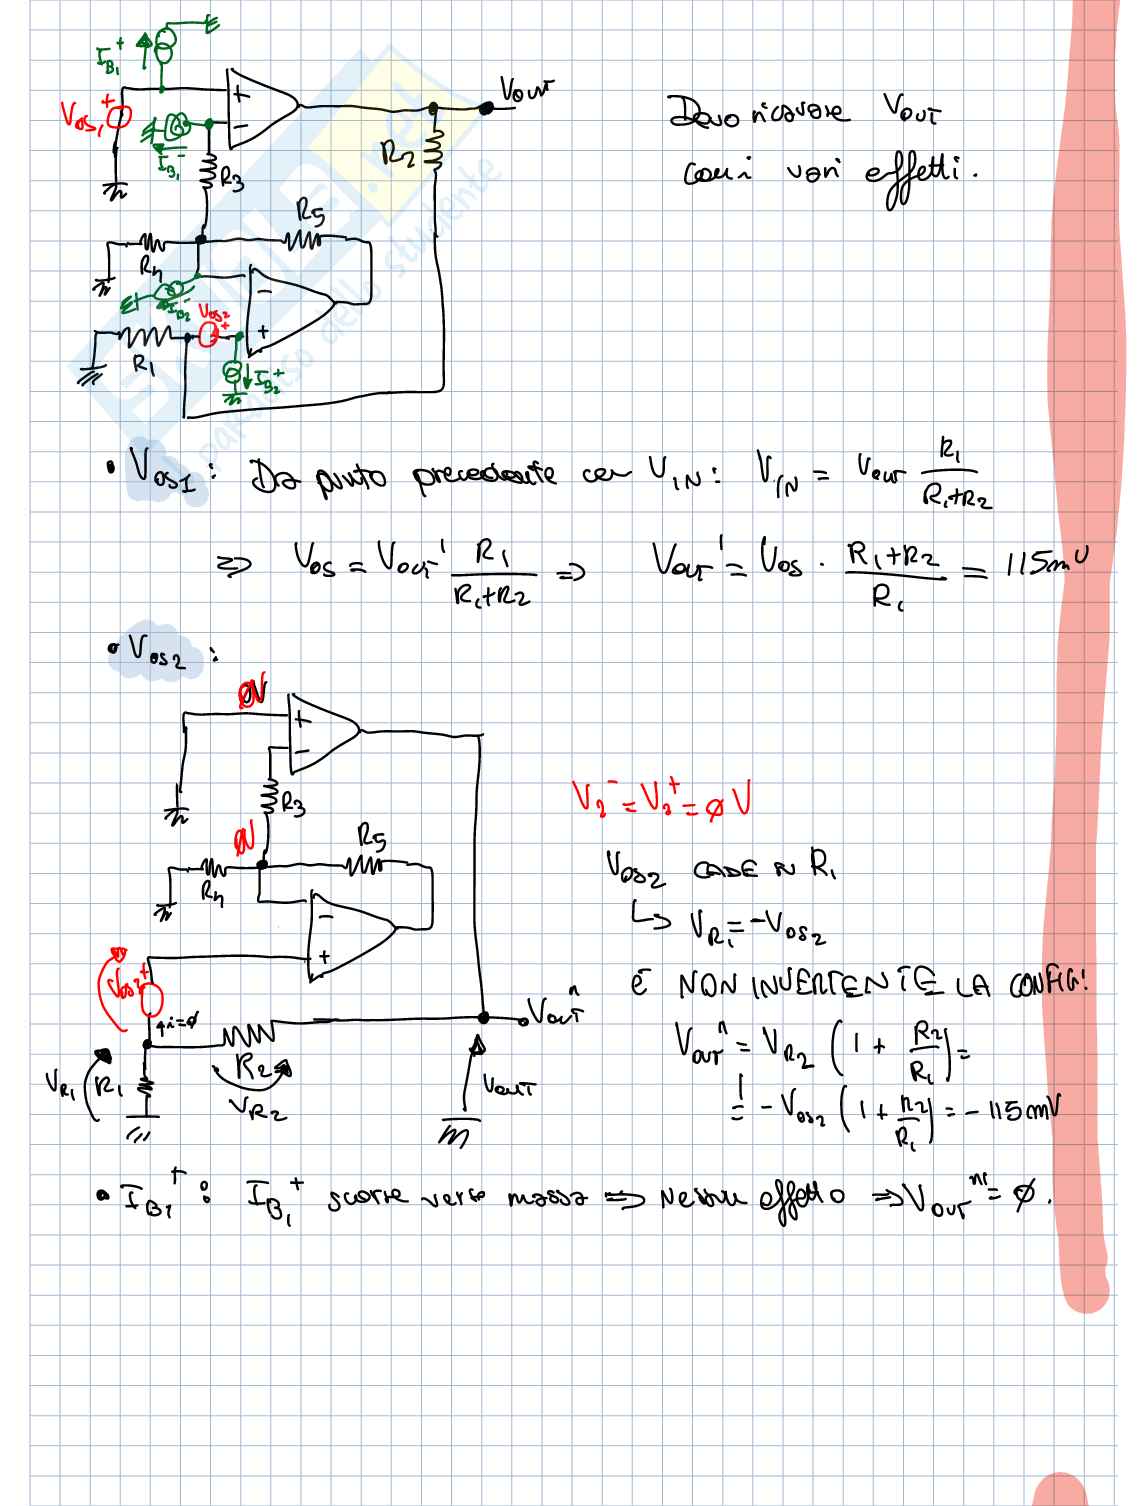 I_B1^+
V_OS1 +
+
−
I_B1^-
R3
R2
Vout
Devo ricavare Vout
con i vari effetti.
R4
R5
I_B2^-
V_OS2 +
−
+
R1
I_B2^+
• V_OS1 : Da punto precedente con V_IN : V_IN = Vout R1/(R1+R2)
=> V_OS = Vout' R1/(R1+R2) => Vout' = V_OS · (R1+R2)/R1 = 115mV
• V_OS2 :
0V
+
−
R3
0V
R4
R5
−
+
V_OS2 +
i=ø
V_R1
R1
R2
V_R2
Vout''
Vout
V2^- = V2^+ = ø V
V_OS2 CADE IN R1
↳ V_R1 = -V_OS2
È NON INVERTENTE LA CONFIG!
Vout'' = V_R2 (1 + R2/R1) =
= -V_OS2 (1 + R2/R1) = -115mV
• I_B1^+ : I_B1^+ scorre verso massa => Nessun effetto => Vout''' = ø.